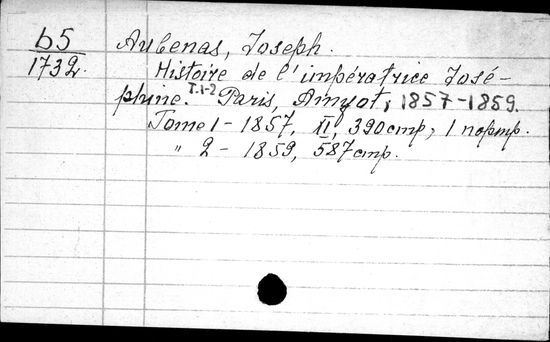 b5
1732.
Aubenas, Joseph.
Histoire de l'impératrice José-
phine. T.1-2 Paris, Amyot, 1857-1859.
Tome 1 - 1857, XI, 390 стр, 1 портр.
" 2 - 1859, 587 стр.